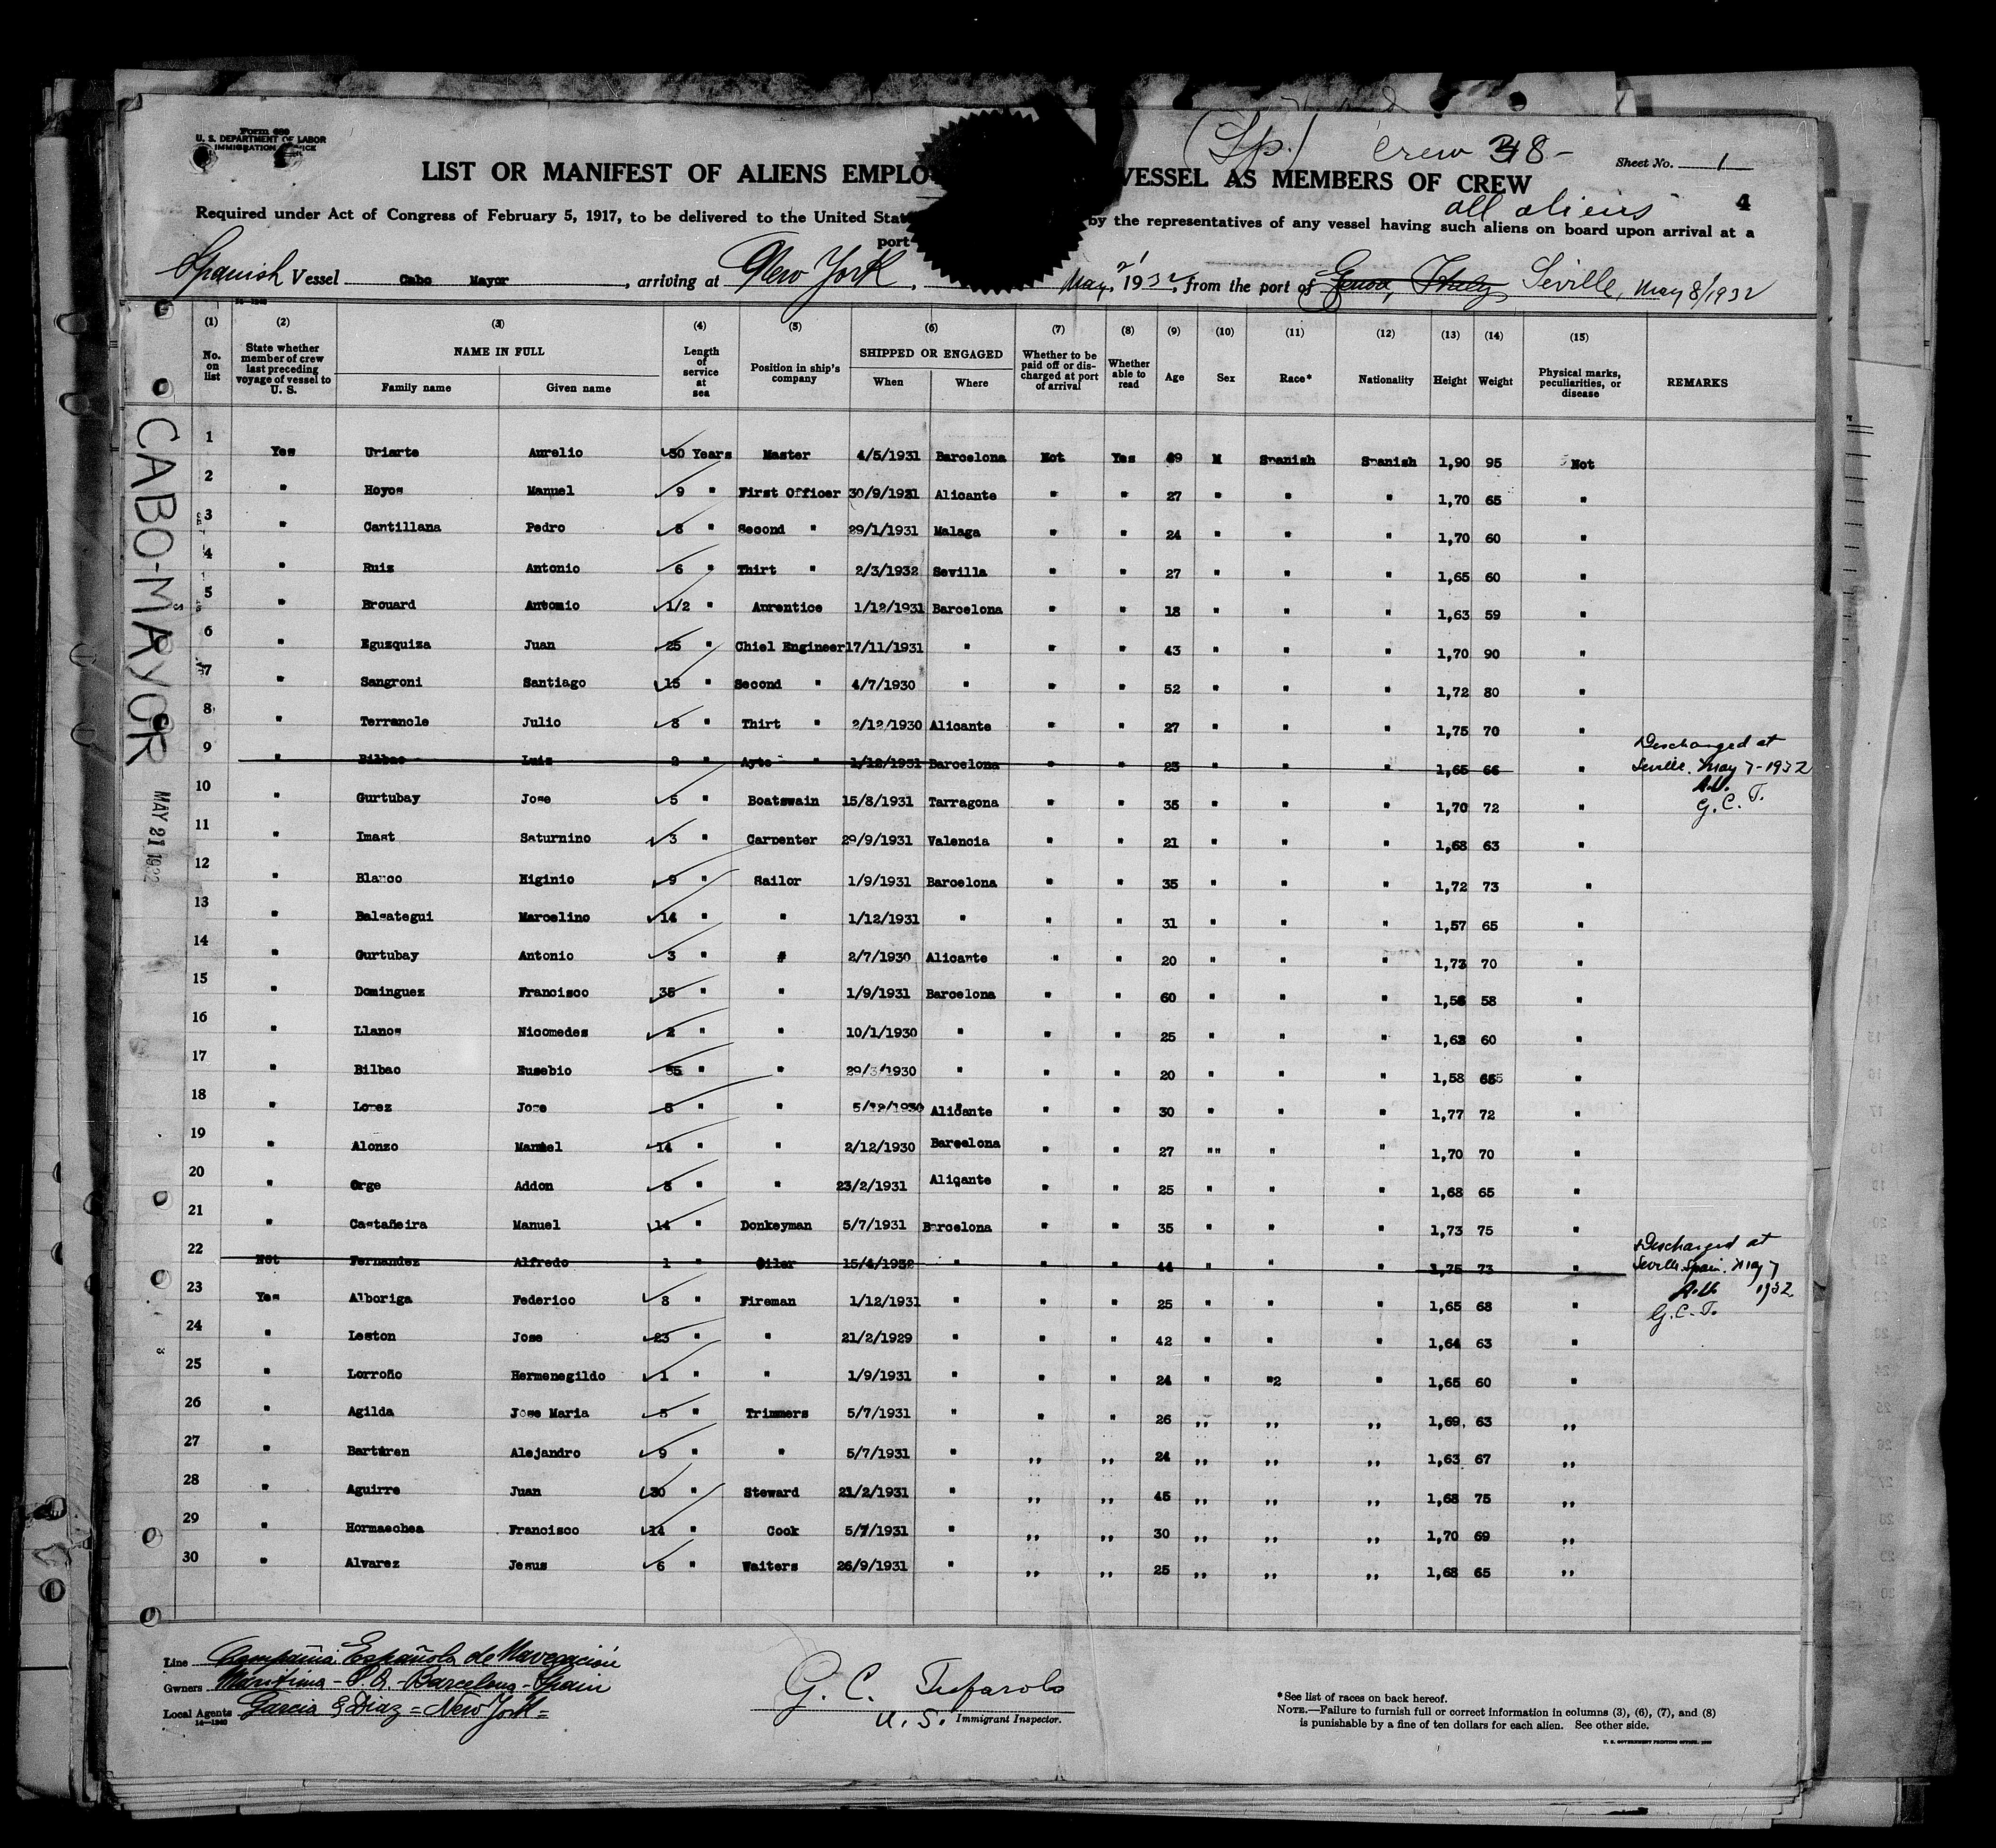 Form 689
U. S. DEPARTMENT OF LABOR
IMMIGRATION SERVICE
(Sp.) Crew 38-
Sheet No. 1
LIST OR MANIFEST OF ALIENS EMPLO VESSEL AS MEMBERS OF CREW
all aliens
4
Required under Act of Congress of February 5, 1917, to be delivered to the United Stat by the representatives of any vessel having such aliens on board upon arrival at a
port
Spanish Vessel Cabo Mayor, arriving at New York, May 21, 1932, from the port of Genoa, Italy Seville, May 8/1932
(1) (2) (3) (4) (5) (6) (7) (8) (9) (10) (11) (12) (13) (14) (15)
No. on list State whether member of crew last preceding voyage of vessel to U. S. NAME IN FULL Family name Given name Length of service at sea Position in ship's company SHIPPED OR ENGAGED When Where Whether to be paid off or discharged at port of arrival Whether able to read Age Sex Race* Nationality Height Weight Physical marks, peculiarities, or disease REMARKS
1 Yes Uriarte Aurelio 30 Years Master 4/5/1931 Barcelona Not Yes 49 M Spanish Spanish 1,90 95 Not
2 " Hoyos Manuel 9 " First Officer 30/9/1931 Alicante " " 27 " " " 1,70 65 "
3 " Cantillana Pedro 8 " Second " 29/1/1931 Malaga " " 24 " " " 1,70 60 "
4 " Ruiz Antonio 6 " Thirt " 2/3/1932 Sevilla " " 27 " " " 1,65 60 "
5 " Brouard Antonio 1/2 " Aprentice 1/12/1931 Barcelona " " 18 " " " 1,63 59 "
6 " Eguzquiza Juan 25 " Chiel Engineer 17/11/1931 " " " 43 " " " 1,70 90 "
7 " Sangroni Santiago 15 " Second " 4/7/1930 " " " 52 " " " 1,72 80 "
8 " Terrancle Julio 8 " Thirt " 2/12/1930 Alicante " " 27 " " " 1,75 70 "
9 " Bilbao Luis 2 " Ayte " 1/12/1931 Barcelona " " 25 " " " 1,65 66 " Descharged at Seville. May 7-1932 A.U. G. C. T.
10 " Gurtubay Jose 5 " Boatswain 15/8/1931 Tarragona " " 35 " " " 1,70 72 "
11 " Imast Saturnino 3 " Carpenter 29/9/1931 Valencia " " 21 " " " 1,68 63 "
12 " Blanco Higinio 9 " Sailor 1/9/1931 Barcelona " " 35 " " " 1,72 73 "
13 " Balsategui Marcelino 14 " " 1/12/1931 " " " 31 " " " 1,57 65 "
14 " Gurtubay Antonio 3 " " 2/7/1930 Alicante " " 20 " " " 1,73 70 "
15 " Dominguez Francisco 35 " " 1/9/1931 Barcelona " " 60 " " " 58 "
16 " Llanos Nicomedes 2 " " 10/1/1930 " " " 25 " " " 60 "
17 " Bilbao Eusebio " " 29/3/1930 " " " 20 " " " 1,58 "
18 " Lopez Jose 8 " " 5/12/1930 Alicante " " 30 " " " 1,77 72 "
19 " Alonzo Manuel 14 " " 2/12/1930 Barcelona " " 27 "" " " 1,70 70 "
20 " Orge Addon 8 " " 23/2/1931 Alicante " " 25 " " " 1,68 65 "
21 " Castañeira Manuel 14 " Donkeyman 5/7/1931 Barcelona " " 35 " " " 1,73 75 "
22 Not Fernandez Alfredo 1 " Oiler 15/4/1932 " " " 44 " " " 1,75 73 " Descharged at Seville Spain. May 7 1932 A.U. G. C. T.
23 Yes Alboriga Federico 8 " Fireman 1/12/1931 " " " 25 " " " 1,65 68 "
24 " Leston Jose 23 " " 21/2/1929 " " " 42 " " " 1,64 63 "
25 " Lorroño Hermenegildo 1 " " 1/9/1931 " " " 24 " "2 " 1,65 60 "
26 " Agilda Jose Maria 5 " Trimmers 5/7/1931 " " " 26 ,, ,, ,, 1,69 63 ,,
27 " Barturen Alejandro 9 " " 5/7/1931 " ,, ,, 24 ,, ,, ,, 1,63 67 ,,
28 " Aguirre Juan 30 " Steward 21/2/1931 " ,, ,, 45 ,, ,, ,, 1,68 75 ,,
29 " Hormaechea Francisco 14 " Cook 5/7/1931 " ,, ,, 30 ,, ,, ,, 1,70 69 ,,
30 " Alvarez Jesus 6 " Waiters 26/9/1931 " ,, ,, 25 ,, ,, ,, 1,68 65 ,,
CABO-MAYOR
MAY 21 1932
Line Compañia Española de Navegación
Owners Maritima - S.A. - Barcelona - Spain
Local Agents Garcia & Diaz = New York =
14-1240
G. C. Tufarolo
U. S. Immigrant Inspector.
*See list of races on back hereof.
NOTE.—Failure to furnish full or correct information in columns (3), (6), (7), and (8)
is punishable by a fine of ten dollars for each alien. See other side.
U. S. GOVERNMENT PRINTING OFFICE